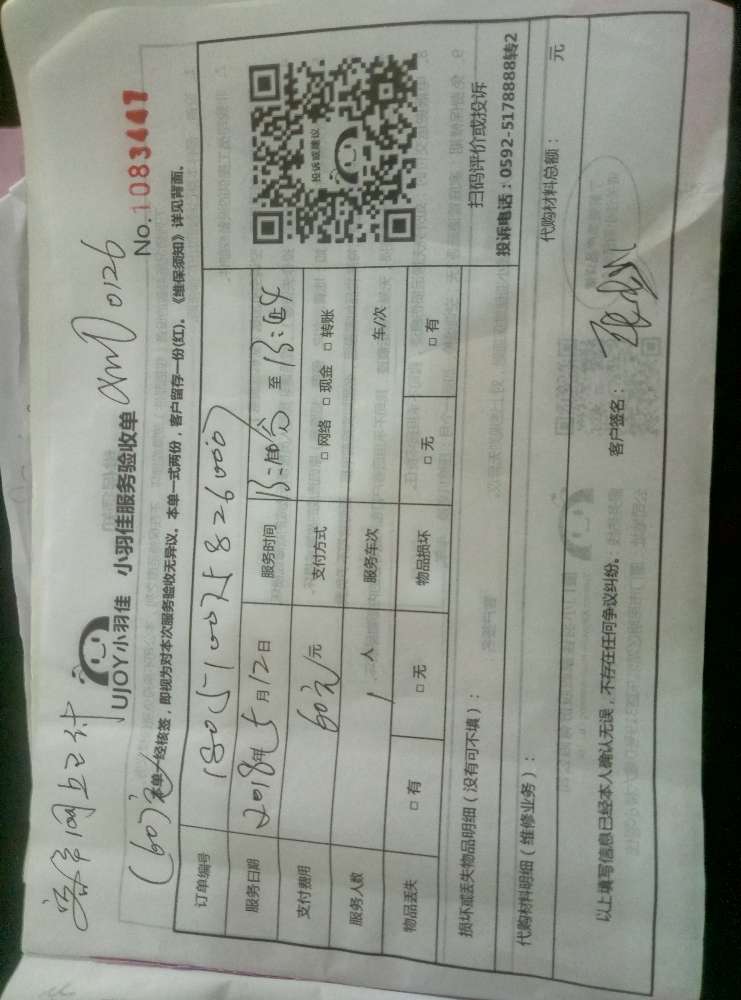 客户网上已付
(60)元
XMD0126
UJOY小羽佳 小羽佳服务验收单
No.1083447
本单一经核签,即视为对本次服务验收无异议。本单一式两份,客户留存一份(红)。《维保须知》详见背面。
订单编号
服务日期 2018年5月12日 服务时间 至
支付费用 60元 元 支付方式 □网络 □现金 □转账
服务人数 1人 服务车次 车/次
物品丢失 □有 □无 物品损坏 □无 □有
投诉或建议
扫码评价或投诉
投诉电话:0592-5178888转2
损坏或丢失物品明细(没有可不填):
代购材料明细(维修业务): 代购材料总额: 元
以上填写信息已经本人确认无误,不存在任何争议纠纷。 客户签名: